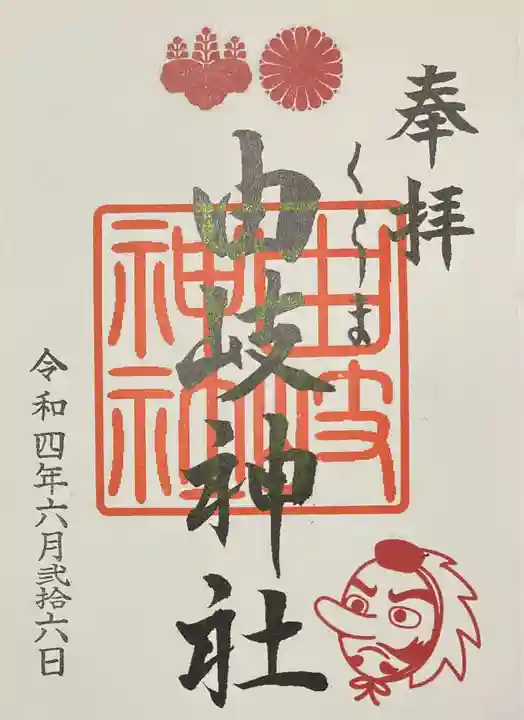 奉拝
くらま
由岐神社
由岐神社
令和四年六月弐拾六日